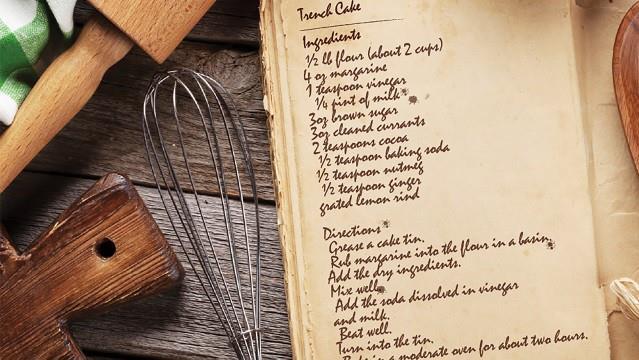 Trench Cake
Ingredients
½ lb flour (about 2 cups)
4 oz margarine
1 teaspoon vinegar
¼ pint of milk
3oz brown sugar
3oz cleaned currants
2 teaspoons cocoa
½ teaspoon baking soda
½ teaspoon nutmeg
½ teaspoon ginger
grated lemon rind
Directions
Grease a cake tin.
Rub margarine into the flour in a basin.
Add the dry ingredients.
Mix well.
Add the soda dissolved in vinegar
and milk.
Beat well.
Turn into the tin.
Bake in a moderate oven for about two hours.